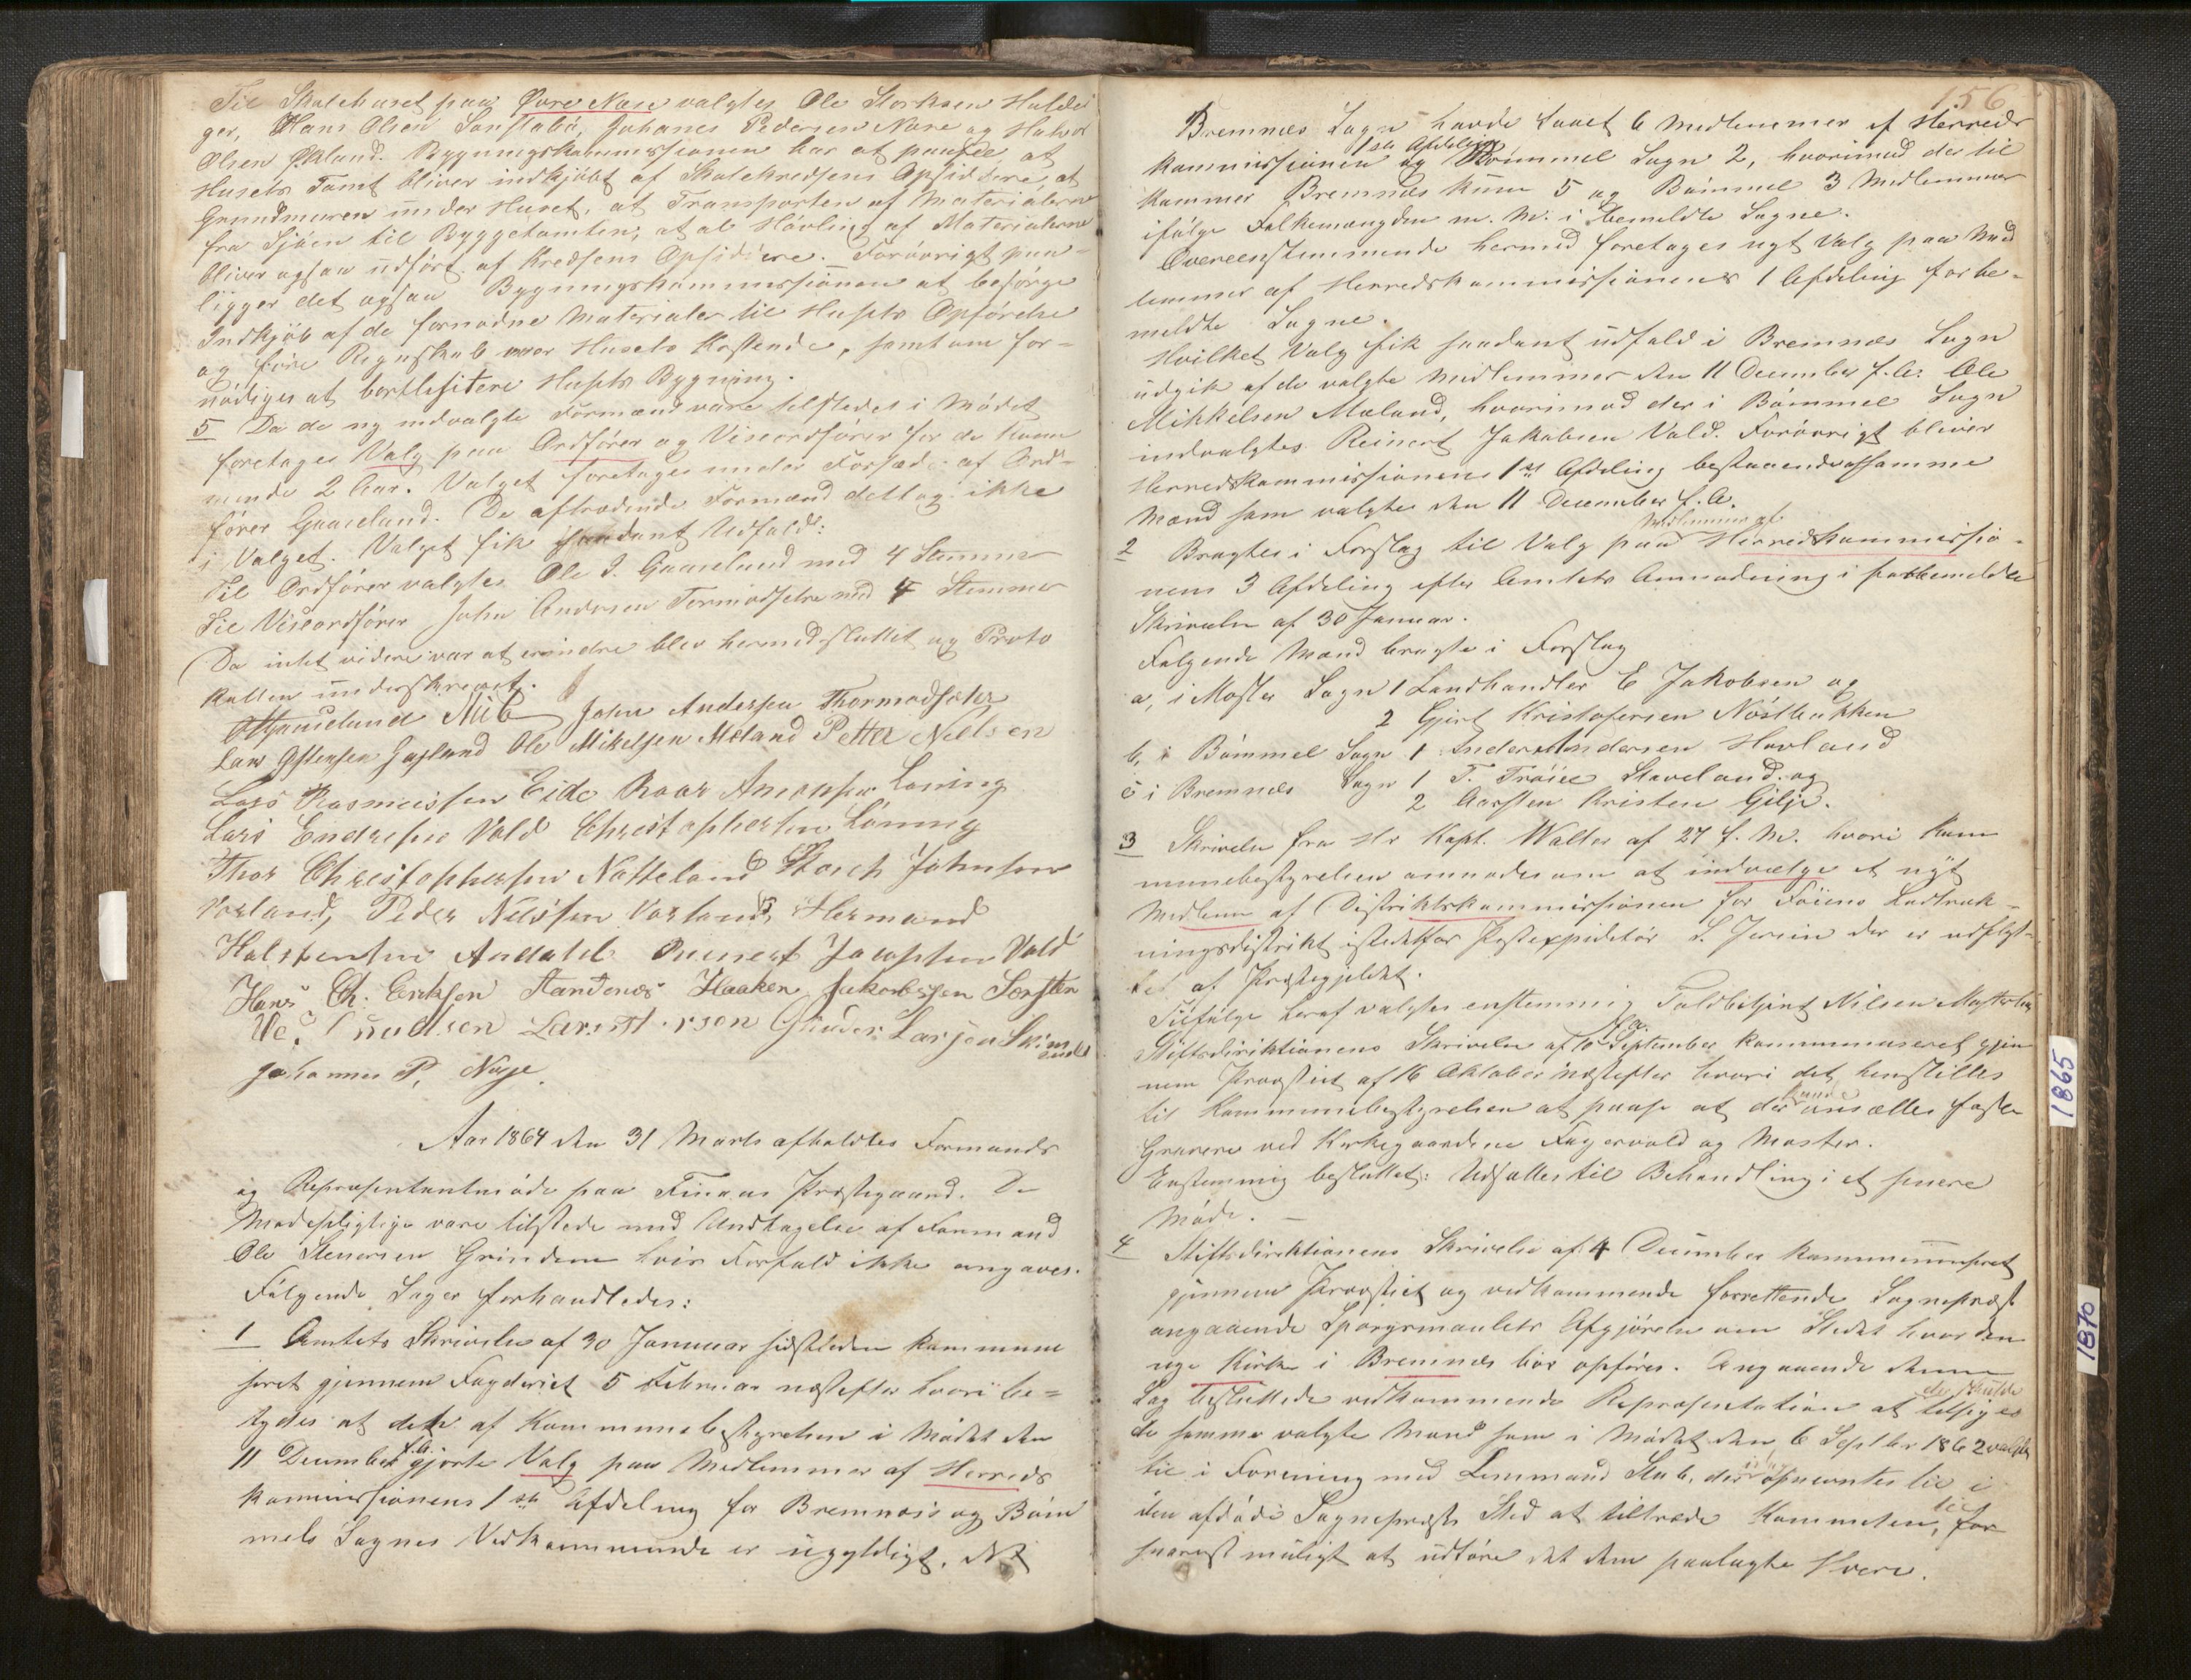 Til Skolehuset paa Øvre Næse valgtes Ole Storksen Halde
ger, Hans Olsen Sønstabø, Johanes Pedersen Næse og
Olsen Økland. Bygningskommissionen har at paasee at
Husets Tomt bliver indkjøbt af Skolekredsens Opsiddere, at
Grundmuren under Huset, at Transporten af Materialerne
fra Sjøen til Byggetomten, at al Høvling af Materialerne
bliver ogsaa udført af Kredsens Opsiddere. Forøvrigt paa-
ligger det ogsaa Bygningskommissionen at besørge
Indkjøb af de fornødne Materialer til Husets Opførelse
og føre Regnskab over Husets Kostende, samt om for-
nødiges at bortlisitere Husets Bygning.
5 Da de ny indvalgte Formænd vare tilstedes i Mødet
foretages Valg paa Ordfører og Viseordfører for de kom
mende 2 Aar. Valget foretages under Forsæde af Ord-
fører Gaaseland. De aftrædende Formænd deltog ikke
i Valget. Valget fik saadant Udfald:
Til Ordfører valgtes Ole J. Gaaseland med 4 Stemmer
Til Viseordfører John Andersen Tormodsætre med 4 Stemmer
Da intet videre var at erindre blev hermed sluttet og Proto
kollen underskrevet.
John Anderssen Thormodsæter
Lars Østensen Ole Mikelsen Mæland Petter Nielsen
Lars Rasmussen Eide Roar Amonsen Løning
Lars Endresen Vold Christophersen Lønning
Thor Christophersen Notteland Storch Johnsen
Vorland, Peder Nilssen Vorland, Hermand
Halstensen Jacopsen Vold
Hans Ch. Eriksen Haaken Jakobssen
Knudsen Larsen
Johannes P. Næse
Aar 1864 den 31 Marts afholdtes Formands
og Repræsentantmøde paa Finaas Præstegaard. De
Mødepligtige vare tilstede med Undtagelse af Formand
Ole Stenersen Grindem hvis Forfald ikke angaves.
Følgende Sager forhandledes:
1 Amtets Skrivelse af 30 Januar sidstleden kommuni
seret gjennem Fogderiet 5 Februar næstefter hvori be-
tydes at dette af Kommunebestyrelsen i Mødet den
11 December f.A. gjorte Valg paa Medlemmer af Herreds
kommissionens 1ste Afdeling for Bremnæs og Bøm
mels Sognes Vedkommende er ugyldigt. At
156
Bremnæs Sogn havde havet 6 Medlemmer af Herreds
kommissionen 1ste Afdeling og Bømmel Sogn 2, hvorimod der til
kommer Bremnæs kun 5 og Bømmel 3 Medlemmer
ifølge Folkemængden m. M. i bemeldte Sogne.
Overeenstemmende hermed foretages nyt Valg paa Med
lemmer af Herredskommissionens 1 Afdeling for be-
meldte Sogne.
Hvilket Valg fik saadant udfald i Bremnæs Sogn
udgik af de valgte Medlemmer den 11 December f.A. Ole
Mikkelsen Mæland, hvorimod der i Bømmel Sogn
indvalgtes Reinert Jakobsen Vold. Forøvrigt bliver
Herredskommissionens 1ste Afdeling bestaaende af samme
Mænd som valgtes den 11 December f.A.
2 Bragtes i Forslag til Valg paa Medlemmer af Herredskommissio-
nens 3 Afdeling efter Amtets Anmodning i forbemeldte
Skrivelse af 30 Januar.
Følgende Mænd bragtes i Forslag
a, i Moster Sogn 1 Landhandler E Jakobsen og
2 Gjert Kristofersen Nøstbakken
b, i Bømmel Sogn 1 Anders Andersen Hovland
c i Bremnæs Sogn 1 T. Trøiel Staveland. og
2 Aarsten Kristen Gilje.
3 Skrivelse fra Hr Kapt. Walter af 27 f. M. hvori Kom
munebestyrelsen anmodes om at indvælge et nyt
Medlem af Distriktskommissionen for Føiens Lodtræk-
ningsdistrikt istedetfor Postexpeditør S. der er udflyt-
tet af Præstegjeldet.
Tilfølge heraf valgtes enstemmig Toldbetjent Nilsen
Stiftsdirektionens Skrivelse af 10 September f.A. kommuniseret gjen
nem Provstiet af 16 Oktober næstefter hvori det henstilles
til Kommunebestyrelsen at paase at der ansættes faste
Gravere ved Kirkegaardene Fagervold og Moster.
Enstemmig besluttet: Udsættes til Behandling i et senere
Møde. —
4 Stiftsdirektionens Skrivelse af 4 December kommuniseret
gjennem Provstiet og vedkommende forrettende Sognepræst
angaaende Spørgsmaalets Afgjørelse om Stedet hvor den
nye Kirke i Bremnæs bør opføres. Angaaende denne
Sag besluttede vedkommende Repræsentation at tilsiges
de samme valgte Mænd som i Mødet den 6 Septbr 1862 valgtes
til i Forening med Lensmand Stub, der
den afdøde Sognepræsts Sted at tiltræde Kommiteen, for
snarest muligt at udføre det dem paalagte Hverv.
1865
1870